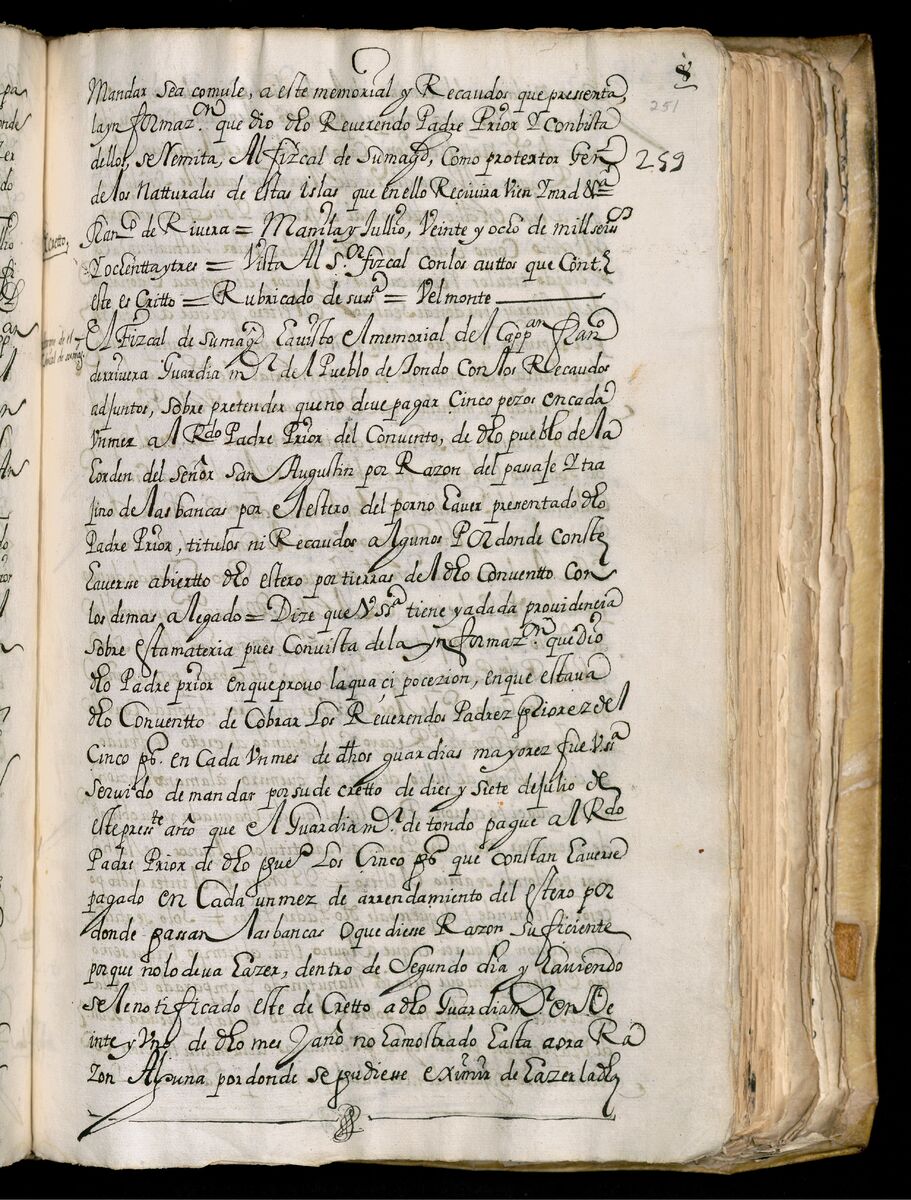 8
251
259
Mandar sea comule, a este memorial y Recaudos que pressenta,
la ynformaz.on que dio dho Reverendo Padre Prior Y conbista
dellos, se Remita, Al fizcal de Su magd, Como protextor Genl
de los Natturales de estas Islas que en ello Recivira Vien Y mrd &a
franco de Rivera = Manila y Jullio, Veinte y ocho de mill seiss
Decretto,
Y ochenttaytres = Vista Al S.or fizcal con los auttos que Cont.e
este esCritto = Rubricado de su ssa = Velmonte
El Fizcal de su magd havisto el memorial del Cappan franco
de rrivera Guardia mor del Pueblo de Tondo Con los Recaudos
adjuntos, sobre pretender que no deve pagar Cinco pezos en cada
Un mez al Rdo Padre Prior del Convento, de dho pueblo de la
horden del señor san Augustin por Razon del passaje Y tra
jino de las bancas por el estero del por no haver presentado dho
Padre Prior, titulos ni Recaudos algunos Por donde Conste
haverse abiertto dho estero por tierras del dho Conventto Con
los demas alegado = Dize que V ssa tiene ya dada providencia
sobre esta materia pues Con vista de la ynformaz.on que dio
dho Padre prior en que provo la quaçi poçezion, en que estava
dho Conventto de Cobrar Los Reverendos Padrez priorez del
Cinco ps. en Cada Un mes de dhos guardias mayorez fue V ssa
Servido de mandar por su decretto de dies y siete de Julio de
este presste año que el Guardia mor de tondo pague al Rdo
Padre Prior de dho pueo Los Cinco ps que Constan haverse
pagado en Cada un mez de arrendamiento del estero por
donde passan las bancas O que diesse Razon suficiente
porque no lo deva hazer, dentro de Segundo dia y haviendo
sele notificado este deCretto a dho Guardia mor en Ve
inte y Uno de dho mes Y año no ha mostrado hasta aora Ra
zon Alguna por donde se pudiesse eximir de hazer la dha